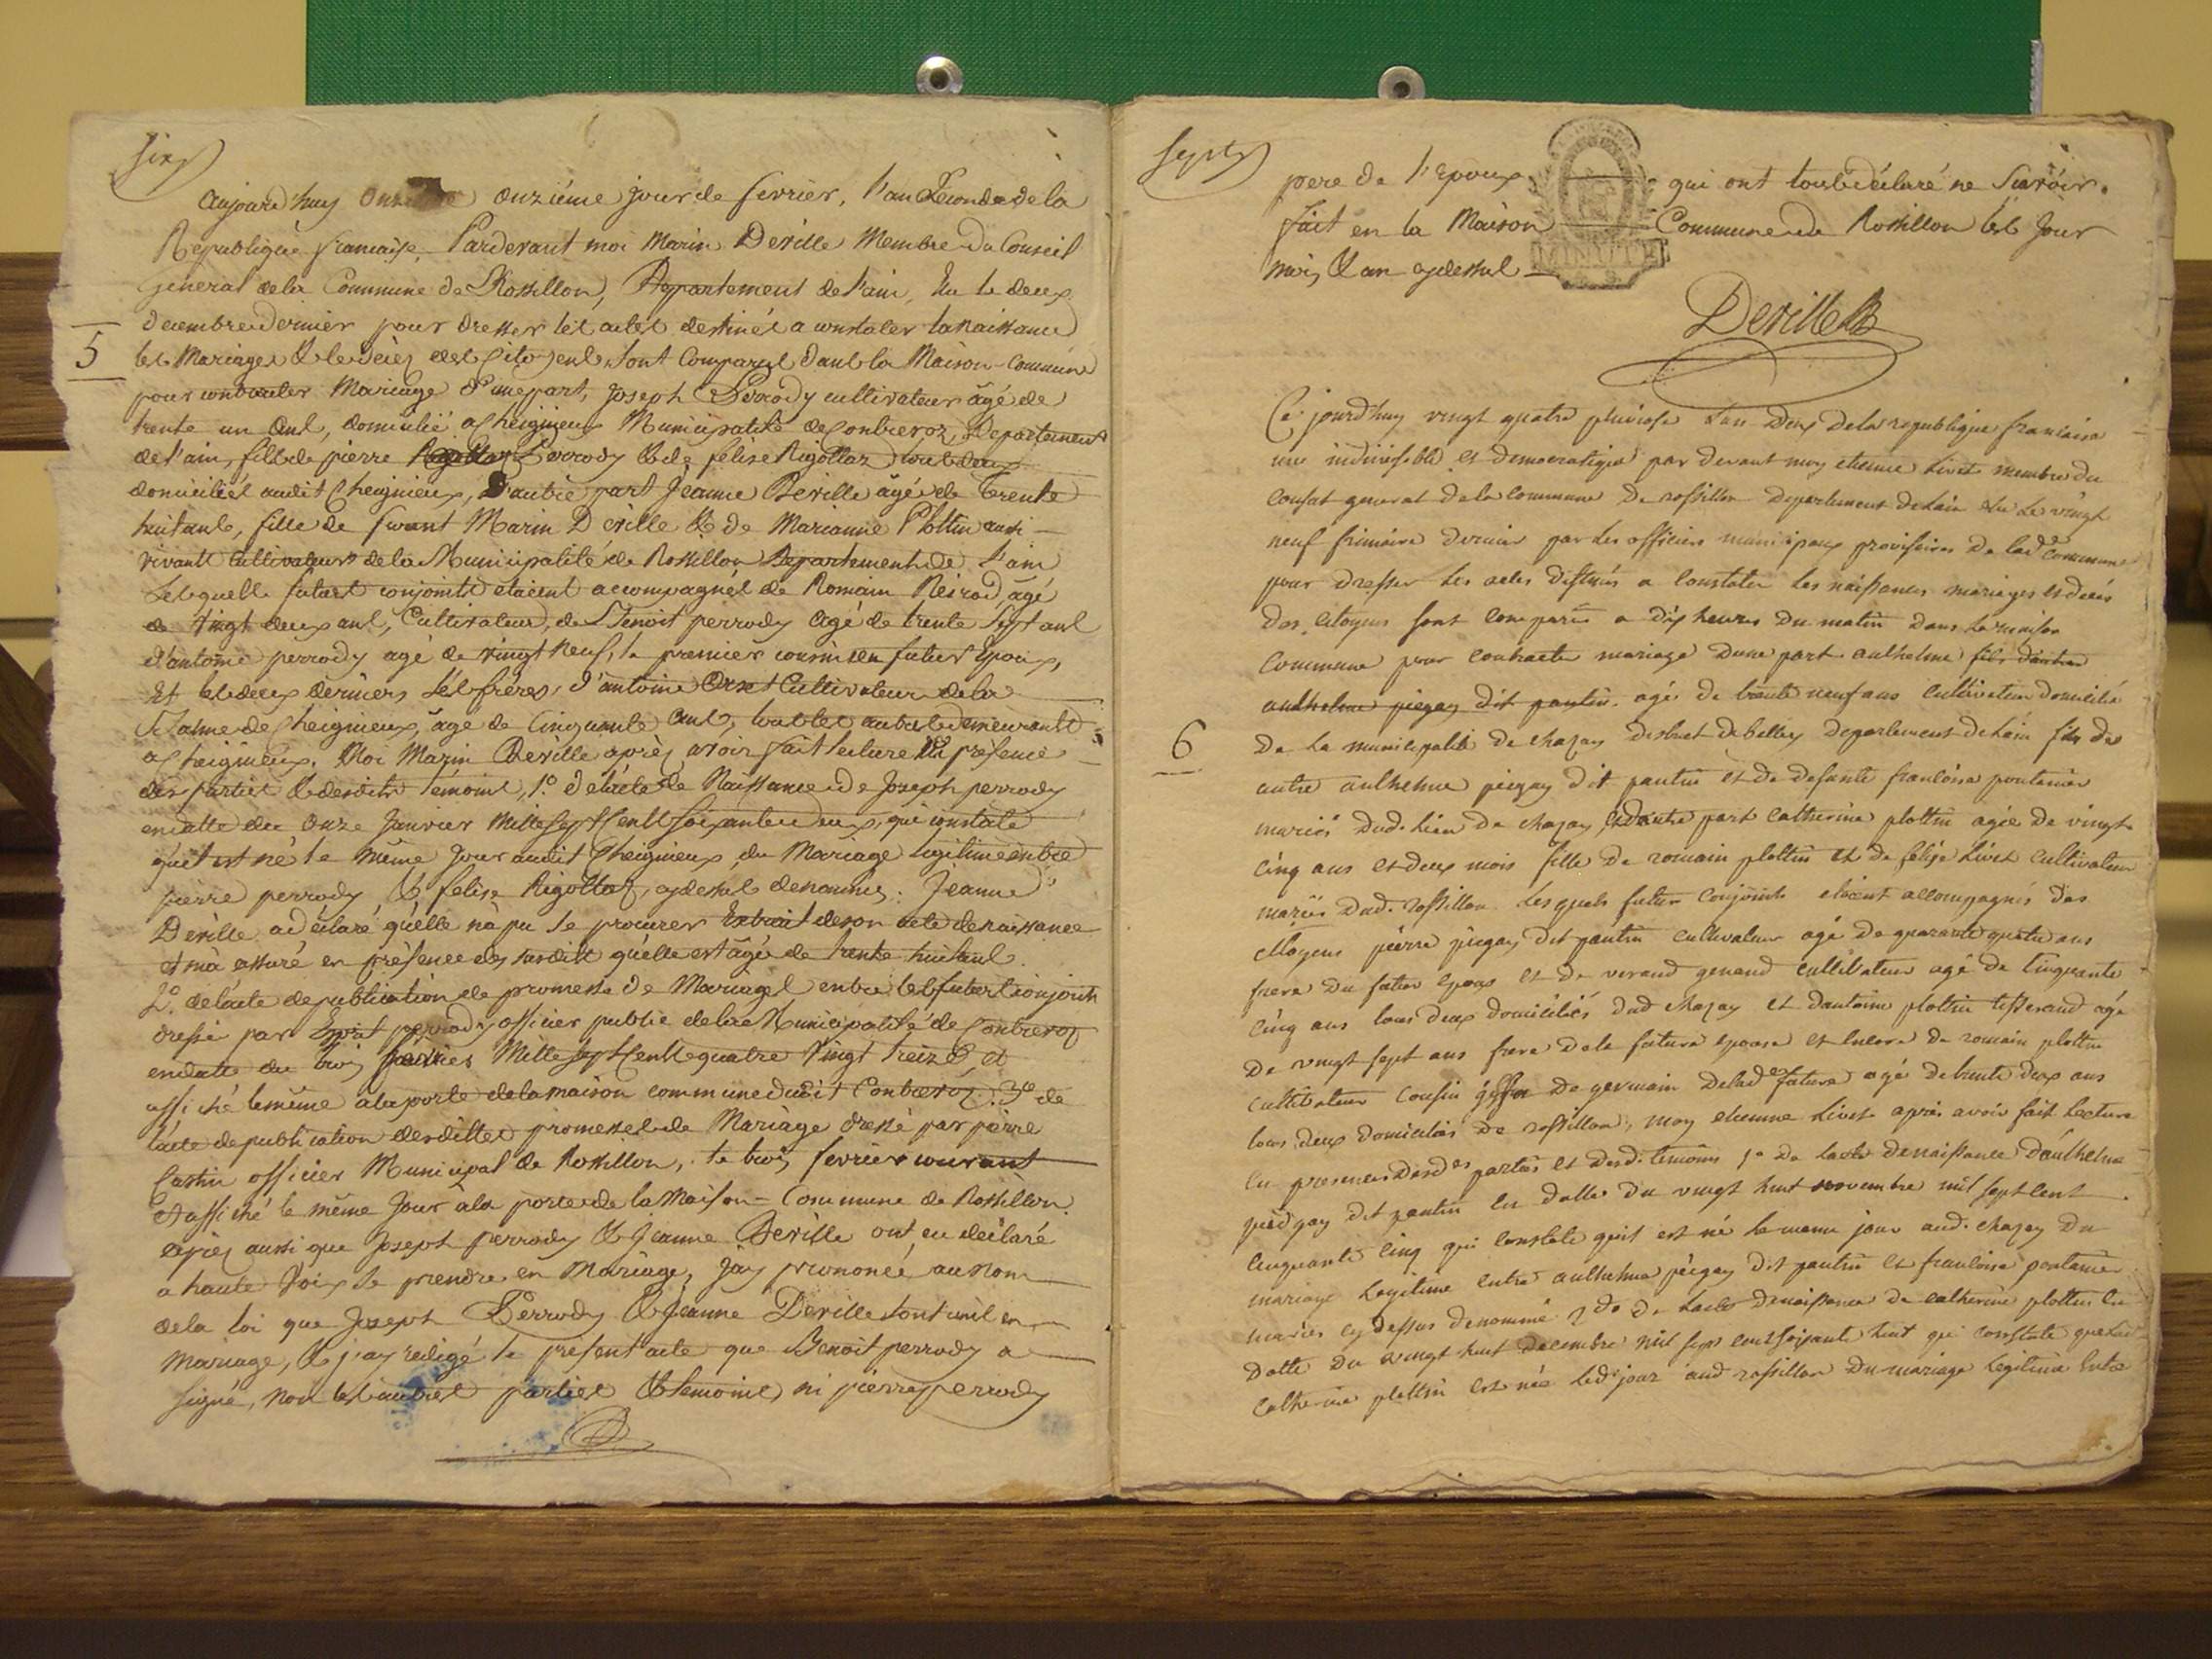 six
aujourd'huy onzième jour de fevrier, l'an Seconde de la
Republique francaise, Pardevant moi Marin Deville Membre du Conseil
General de la Commune de Rossillon, Departement de l'ain, Elu le deux
decembre dernier pour dresser les actes destinés a constater la naissance
5
les Mariages & le décès des Citoyens, sont Comparus dans la Maison-Commune
pour contracter Mariage d'une part, Joseph Perrody cultivateur âgé de
trente un ans, domicilié a Cheignieux Municipalité de Contrevoz, Departement
de l'ain, fils de pierre Perrody & de felise Rigottaz tous deux
domiciliés audit Cheignieux, D'autre part Jeanne Deville âgée de Trente
huit ans, fille de Marin Deville & de Marianne Plottin
vivants Cultivateurs de la Municipalité de Rossillon Departement de l'ain
Lesquels futurs conjoints étaient accompagnés de Romain Reirod âgé
de vingt deux ans, Cultivateur, de Benoit perrody âgé de trente sept ans
d'antoine perrody agé de vingt neuf, le premier cousin du futur Epoux,
Et les deux derniers ses frères, d'antoine Cultivateur de la
de Cheignieux, âgé de Cinquante ans, tous les autres demeurants
a Cheignieux. Moi Marin Deville après avoir fait lecture en présence
des parties & desdits témoins, 1.º de l'acte de Naissance de Joseph perrody
en datte du onze Janvier Mille Sept Cents Soixante deux, qui constate
qu'il est né le même jour audit Cheignieux du Mariage legitime entre
pierre perrody & felise Rigottaz, cydessus denommés. Jeanne
Deville a déclaré qu'elle n'a pu se procurer Extrait de son acte de naissance
et m'a assuré en présence des susdits qu'elle est âgée de trente huit ans.
2.º de l'acte de publication de promesse de Mariages entre les futurs conjoints
dressé par perrody officier public de la Municipalité de Contrevoz
en datte du trois fevrier Mille Sept Cents quatre Vingt treize, et
affiché le même a la porte de la maison commune dudit Contrevoz. 3º de
l'acte de publication desdittes promesses de Mariage dressé par pierre
officier Municipal de Rossillon, le trois fevrier courant
Et affiché le même Jour a la porte de la Maison-Commune de Rossillon.
après aussi que Joseph perrody & Jeanne Deville ont eu déclaré
a haute Voix se prendre en Mariage, J'ay prononcé au Nom
de la loi que Joseph Perrody & Jeanne Deville sont unis en
Mariage, & j'ay redigé le présent acte que Benoit perrody a
signé, non les autres parties & témoins, ni pierre perrody
sept
pere de l'Epoux, qui ont tous déclaré ne Savoir.
fait en la Maison Commune de Rossillon les Jour
mois & an cydessus
MINUTE
Deville
Ce jourd'huy vingt quatre pluviose L'an Deux de la republique francaise
une indivisible et democratique par devant moy etienne Livet membre du
conseil general de la commune De rossillon departement de Lain elu Le vingt
neuf frimaire dernier par Les officiers municipaux provisoires De lad.e Commune
pour dresser Les actes destinés a Constater Les naissances mariages et décés
Des Citoyens sont comparus a dix heures Du matin Dans La maison
Commune pour contracter mariage Dune part anthelme fils dautre
anthelme piegay dit pantin agé De trente neuf ans cultivateur domicilié
6
De La municipalité De chazey District De belley Departement De Lain fils de
autre anthelme piegay dit pantin et De defunte francoise pontanier
mariés Dud. Lieu De chazey, et Dautre part catherine plottin agée De vingt
cinq ans et deux mois fille De romain plottin et De felize Livet cultivateur
mariés Dud. rossillon Les quels futur Conjoints etoient accompagnés Des
citoyens pierre piegay dit pantin cultivateur agé De quarante quatre ans
frere Du futur epoux et De verand genand cultivateur agé De Cinquante
cinq ans tous deux domiciliés Dud chazey et Dantoine plottin tisserand agé
De vingt sept ans frere Dela future epouse et encore De romain plottin
cultivateur Cousin De germain Delad.e future agé De trente Deux ans
tous Deux domiciliés De rossillon, moy etienne Livet après avoir fait Lecture
En presence Desd.es parties et Desd. temoins 1.º De Lacte De naissance Danthelme
piedgay dit pantin En datte Du vingt huit novembre mil sept cent
Cinquante Cinq qui Constate quil est né Le meme jour aud. chazey Du
mariage Legitime Entre anthelme piegay dit pantin et francoise pontanier
mariés cy dessus denommé 2.do De Lacte De naissance De catherine plottin En
Datte Du vingt huit Decembre mil sept cent soixante huit qui constate que Lad
Catherine plottin est née Led. jour aud rossillon Du mariage Legitime Entre